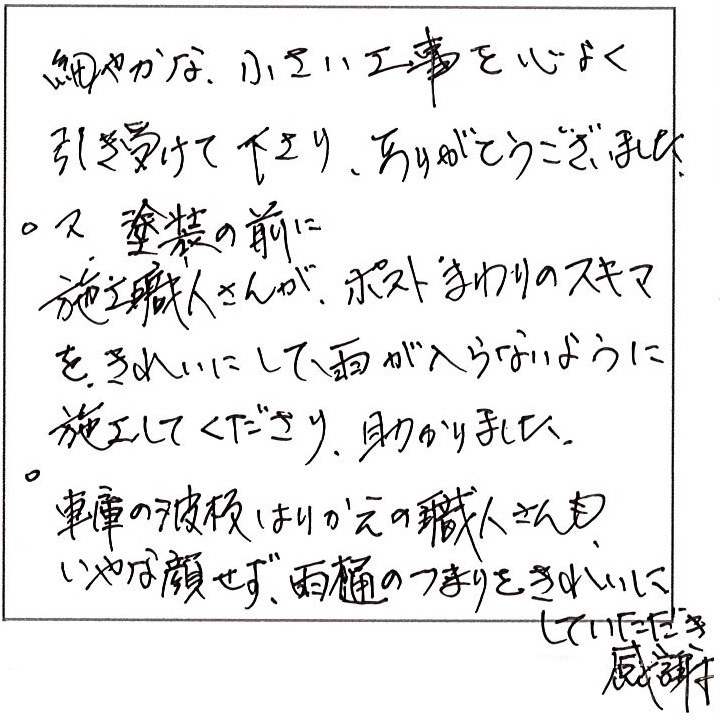 細やかな、小さい工事を心よく
引き受けて下さり、ありがとうございました。
○又、塗装の前に
施工職人さんが、ポストまわりのスキマ
を、きれいにして、雨が入らないように
施工してくださり、助かりました。
○
車庫の波板はりかえの職人さんも、
いやな顔せず、雨樋のつまりをきれいに
していただき
感謝